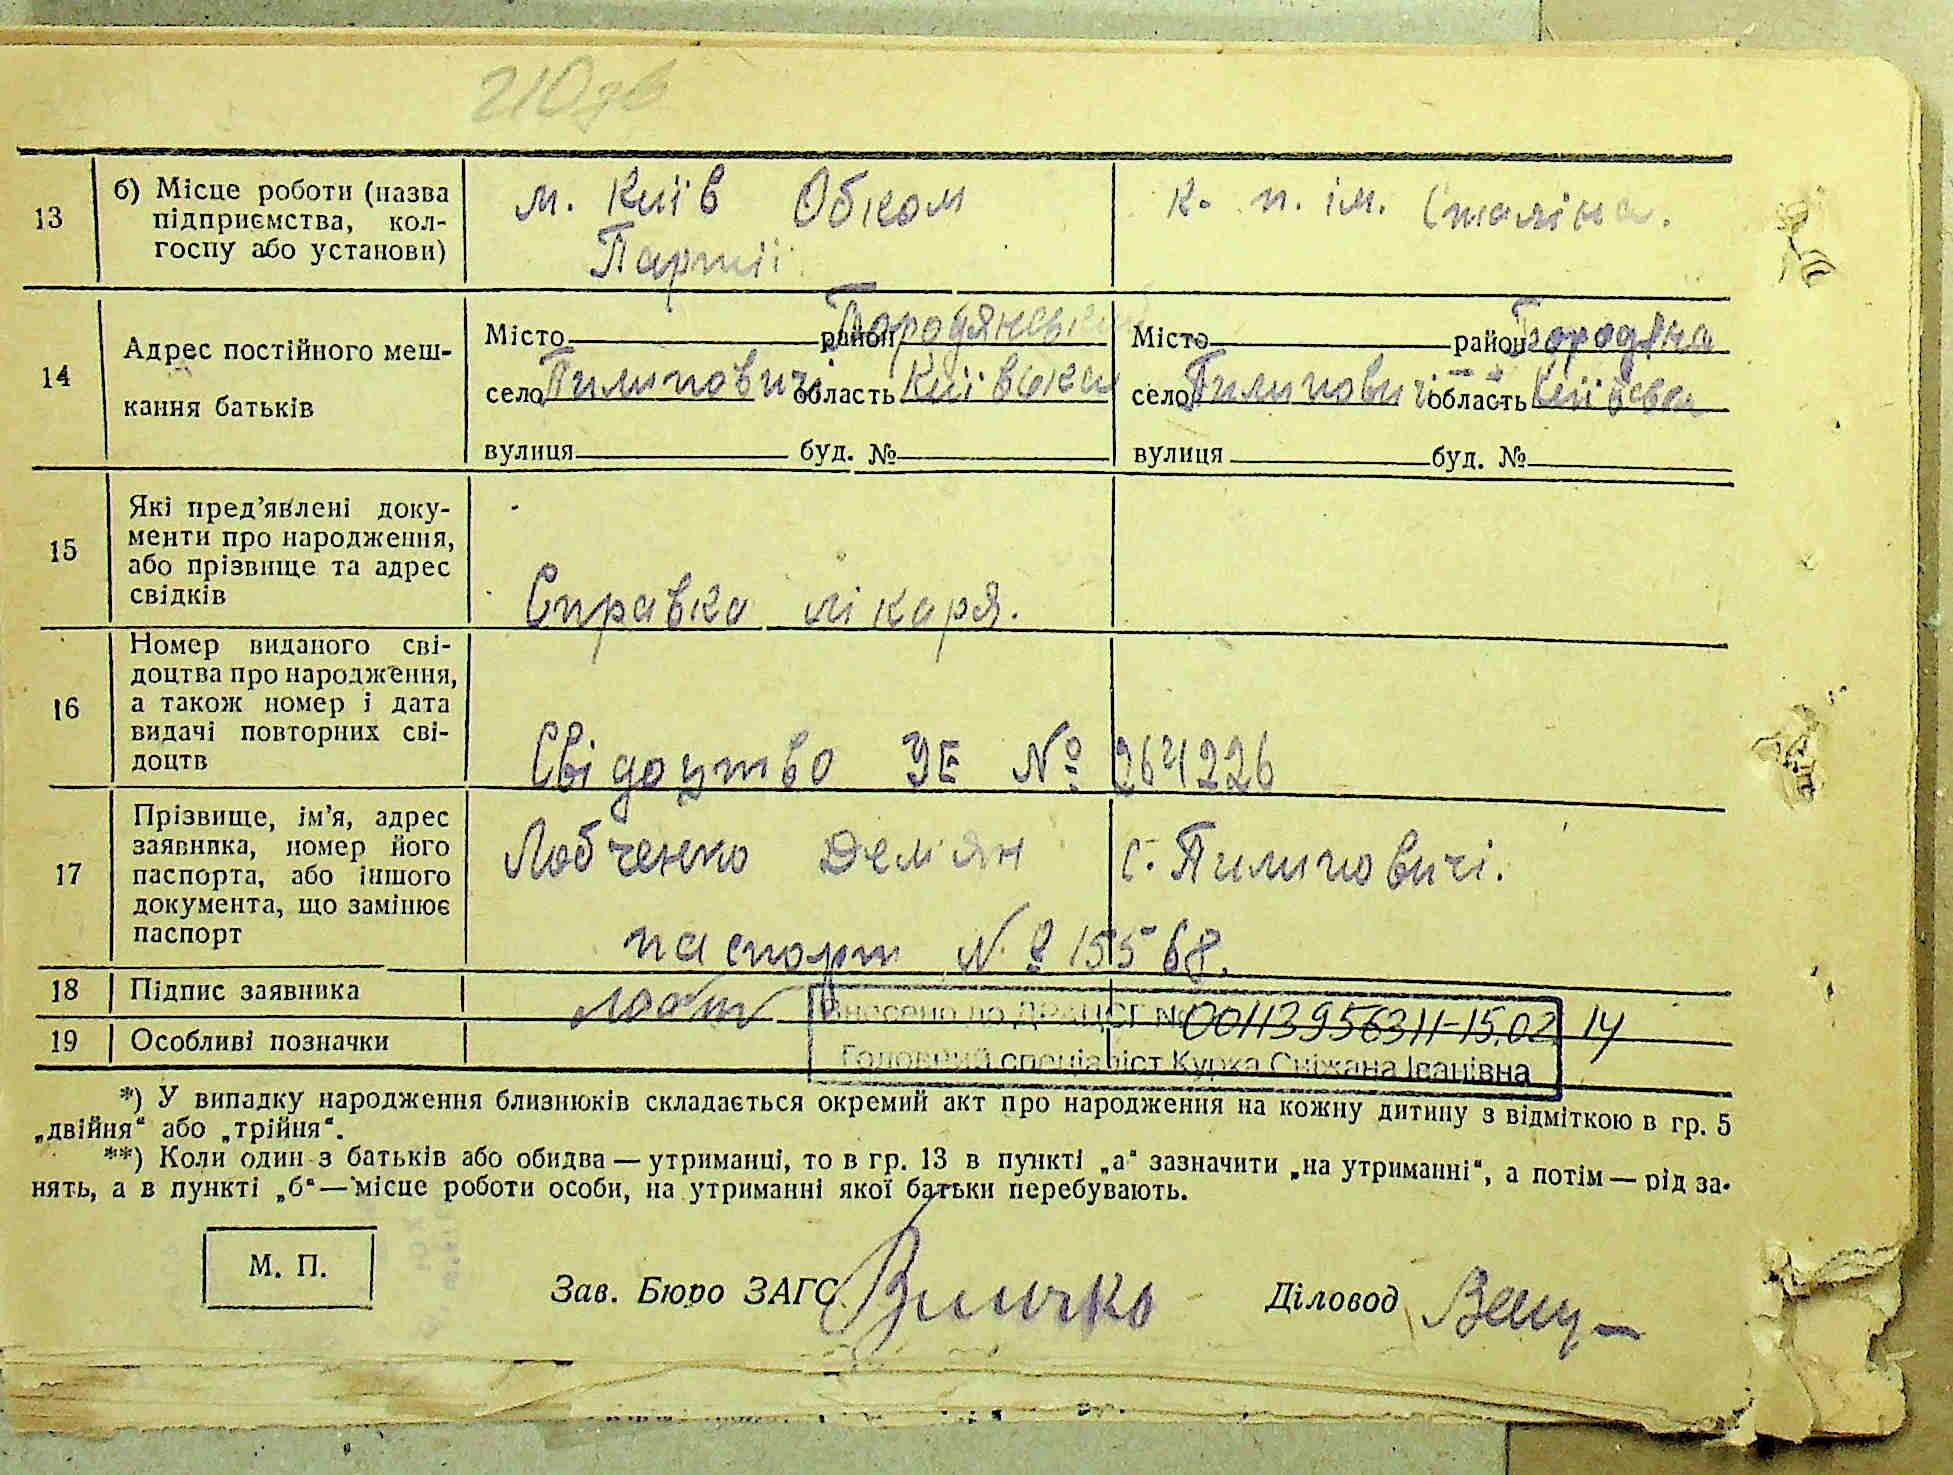 210зв
13 б) Місце роботи (назва підприємства, кол-госпу або установи)
м. Київ Обком
Партії
к. п. ім. Сталіна.
14 Адрес постійного меш-
кання батьків
Місто район Бородянський
село Пилиповичі область Київська
вулиця буд. №
Місто район Бородянка
село Пилиповичі область Київська
вулиця буд. №
15 Які пред’явлені доку-
менти про народження,
або прізвище та адрес
свідків
Справка лікаря.
16 Номер виданого сві-
доцтва про народження,
а також номер і дата
видачі повторних сві-
доцтв
Свідоцтво УЕ № 264226
17 Прізвище, ім’я, адрес
заявника, номер його
паспорта, або іншого
документа, що замінює
паспорт
Лобченко Дем'ян с. Пилиповичі.
паспорт № 15568.
18 Підпис заявника
19 Особливі позначки
Внесено до ДРАЦСГ № 00113956311-15.02.14
Головний спеціаліст Курха Сніжана Іванівна
*) У випадку народження близнюків складається окремий акт про народження на кожну дитину з відміткою в гр. 5
„двійня“ або „трійня“.
**) Коли один з батьків або обидва — утриманці, то в гр. 13 в пункті „а“ зазначити „на утриманні“, а потім — рід за-
нять, а в пункті „б“ — місце роботи особи, на утриманні якої батьки перебувають.
М. П.
Зав. Бюро ЗАГС
Діловод